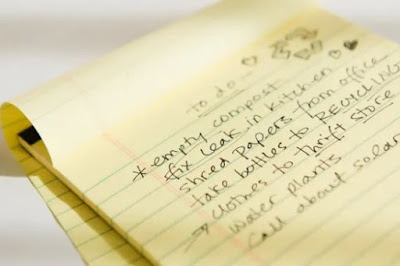 to do
* empty compost
fix leak in kitchen
shred papers from office
take bottles to RECYCLING
→ clothes to thrift store
water plants
call about solar